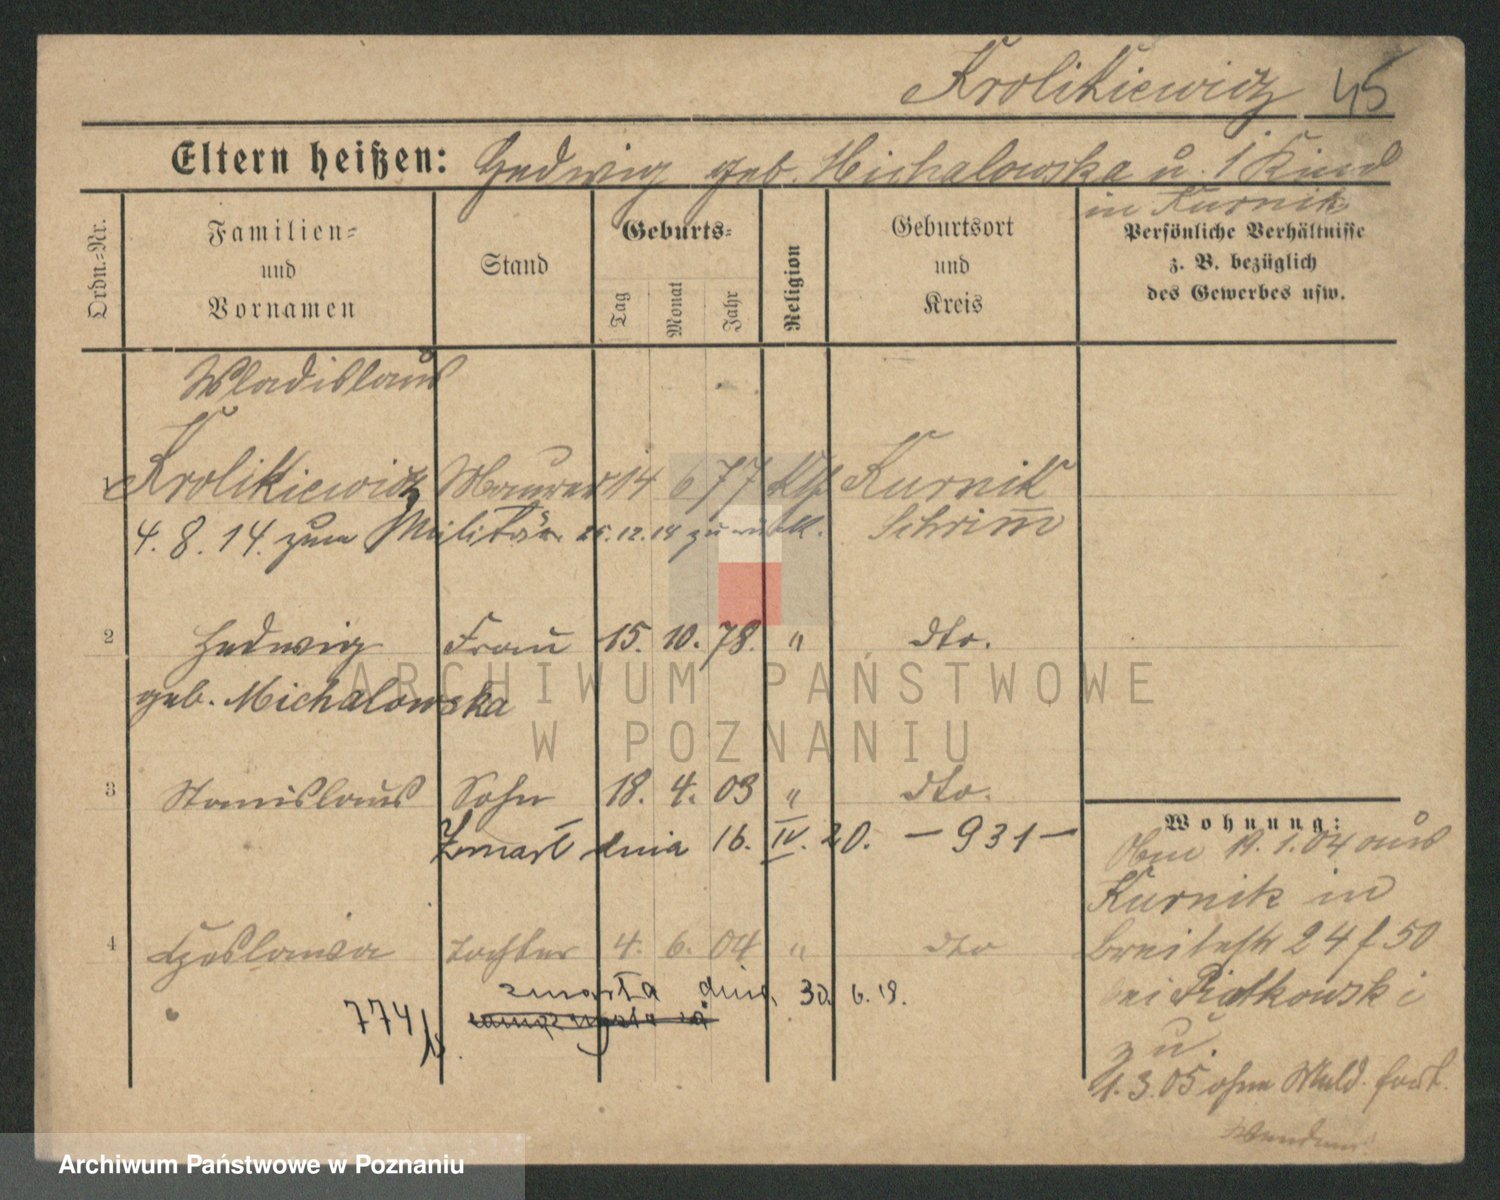 Krolikiewicz 45
Eltern heißen: Hedwig geb. Michalowska u. 1 Kind
in Kurnik
Ordn.-Nr.
Familien-
und
Vornamen
Stand
Geburts-
Tag
Monat
Jahr
Religion
Geburtsort
und
Kreis
Persönliche Verhältnisse
z. B. bezüglich
des Gewerbes usw.
Wladislaus
1 Krolikiewicz Maurer 14 6 77 Kth Kurnik
4. 8. 14. zum Militär 25.12.18 zurück. Schrimm
2 Hedwig Frau 15. 10. 78. " dto.
geb. Michalowska
3 Stanislaus Sohn 18. 4. 03 " dto.
Zmarł dnia 16. IV. 20. — 931 —
4 Czeslawa Tochter 4. 6. 04 " dto
zmarła dnia 30. 6. 19.
774/
Wohnung:
1. 04 aus
Kurnik in
Breitestr 24 f 50
bei Piotkowski
zu.
1. 3. 05 ohne Meld. fort.
ARCHIWUM PAŃSTWOWE
W POZNANIU
Archiwum Państwowe w Poznaniu